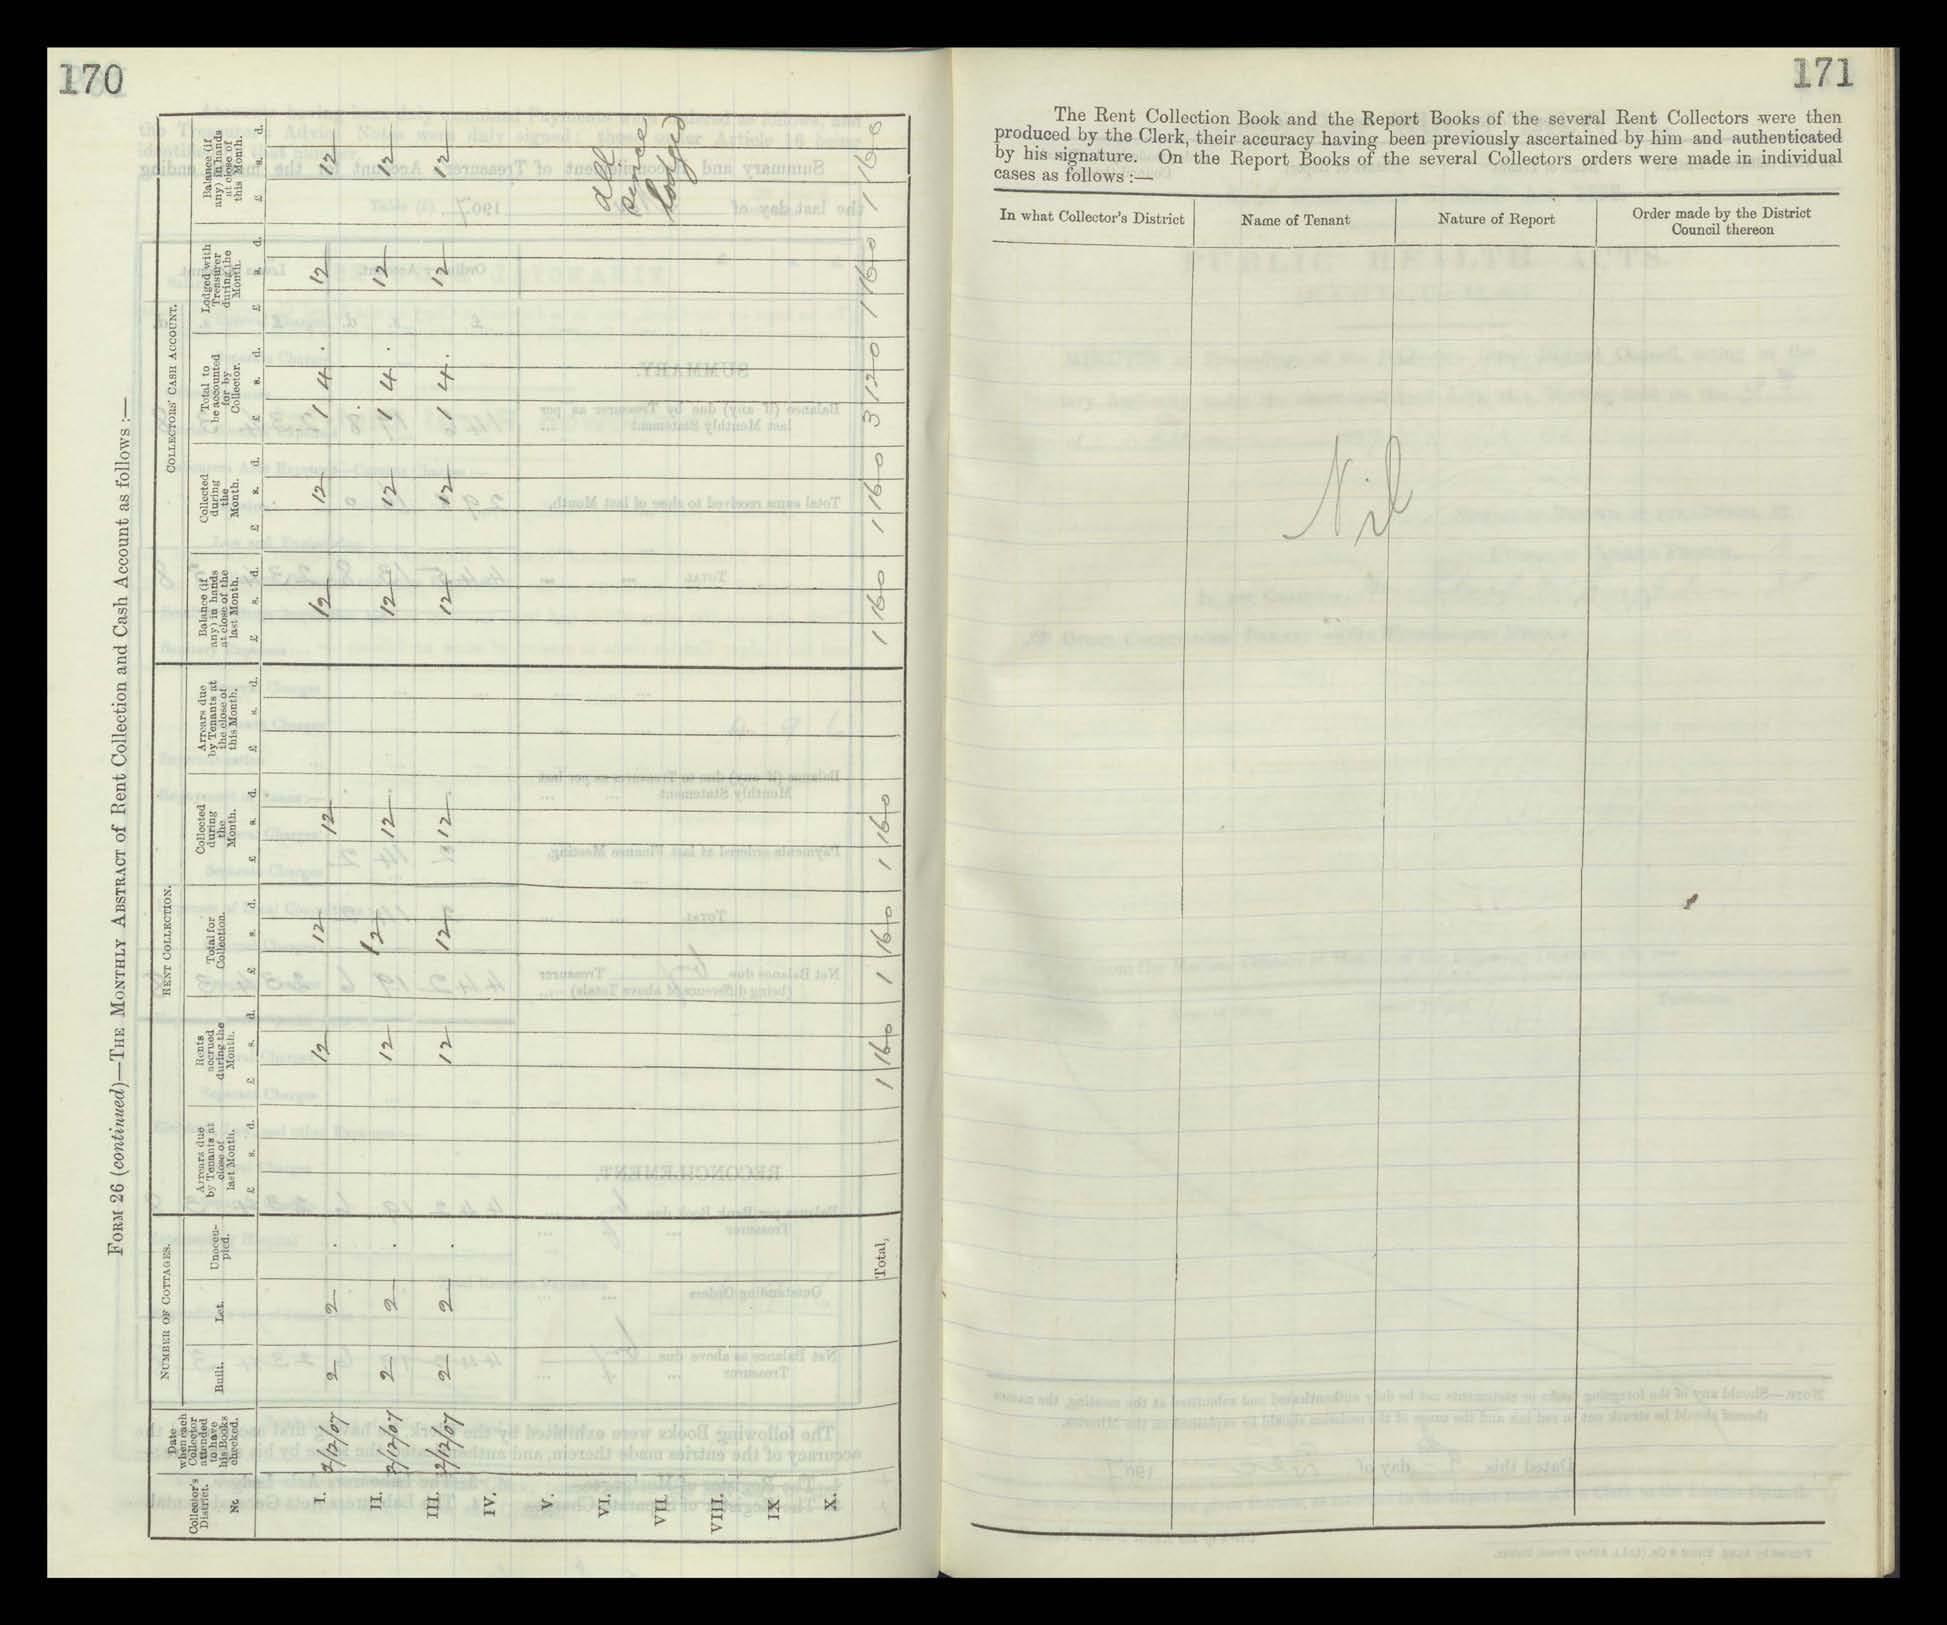 170
FORM 26 (continued)—THE MONTHLY ABSTRACT of Rent Collection and Cash Account as follows :—
Collector's District. No.
Date when each Collector attended to have his Books checked.
NUMBER OF COTTAGES.
Built.
Let.
Unoccupied.
RENT COLLECTION.
Arrears due by Tenants at close of last Month.
£ s. d.
Rents accrued during the Month.
£ s. d.
Total for Collection.
£ s. d.
Collected during the Month.
£ s. d.
Arrears due by Tenants at the close of this Month.
£ s. d.
COLLECTORS' CASH ACCOUNT.
Balance (if any) in hands at close of the last Month.
£ s. d.
Collected during the Month.
£ s. d.
Total to be accounted for by Collector.
£ s. d.
Lodged with Treasurer during the Month.
£ s. d.
Balance (if any) in hands at close of this Month.
£ s. d.
I. 2/12/07 2 2 . 12 12 12 12 12 1 4 . 12 12
II. 2/12/07 2 2 . 12 12 12 12 12 1 4 . 12 12
III. 2/12/07 2 2 . 12 12 12 12 12 1 4 . 12 12
IV.
V.
VI. all
VII. since
VIII. lodged
IX
X.
Total, 1 16 0 1 16 0 1 16 0 1 16 0 1 16 0 3 12 0 1 16 0 1 16 0
171
The Rent Collection Book and the Report Books of the several Rent Collectors were then
produced by the Clerk, their accuracy having been previously ascertained by him and authenticated
by his signature. On the Report Books of the several Collectors orders were made in individual
cases as follows :—
In what Collector's District
Name of Tenant
Nature of Report
Order made by the District
Council thereon
Nil